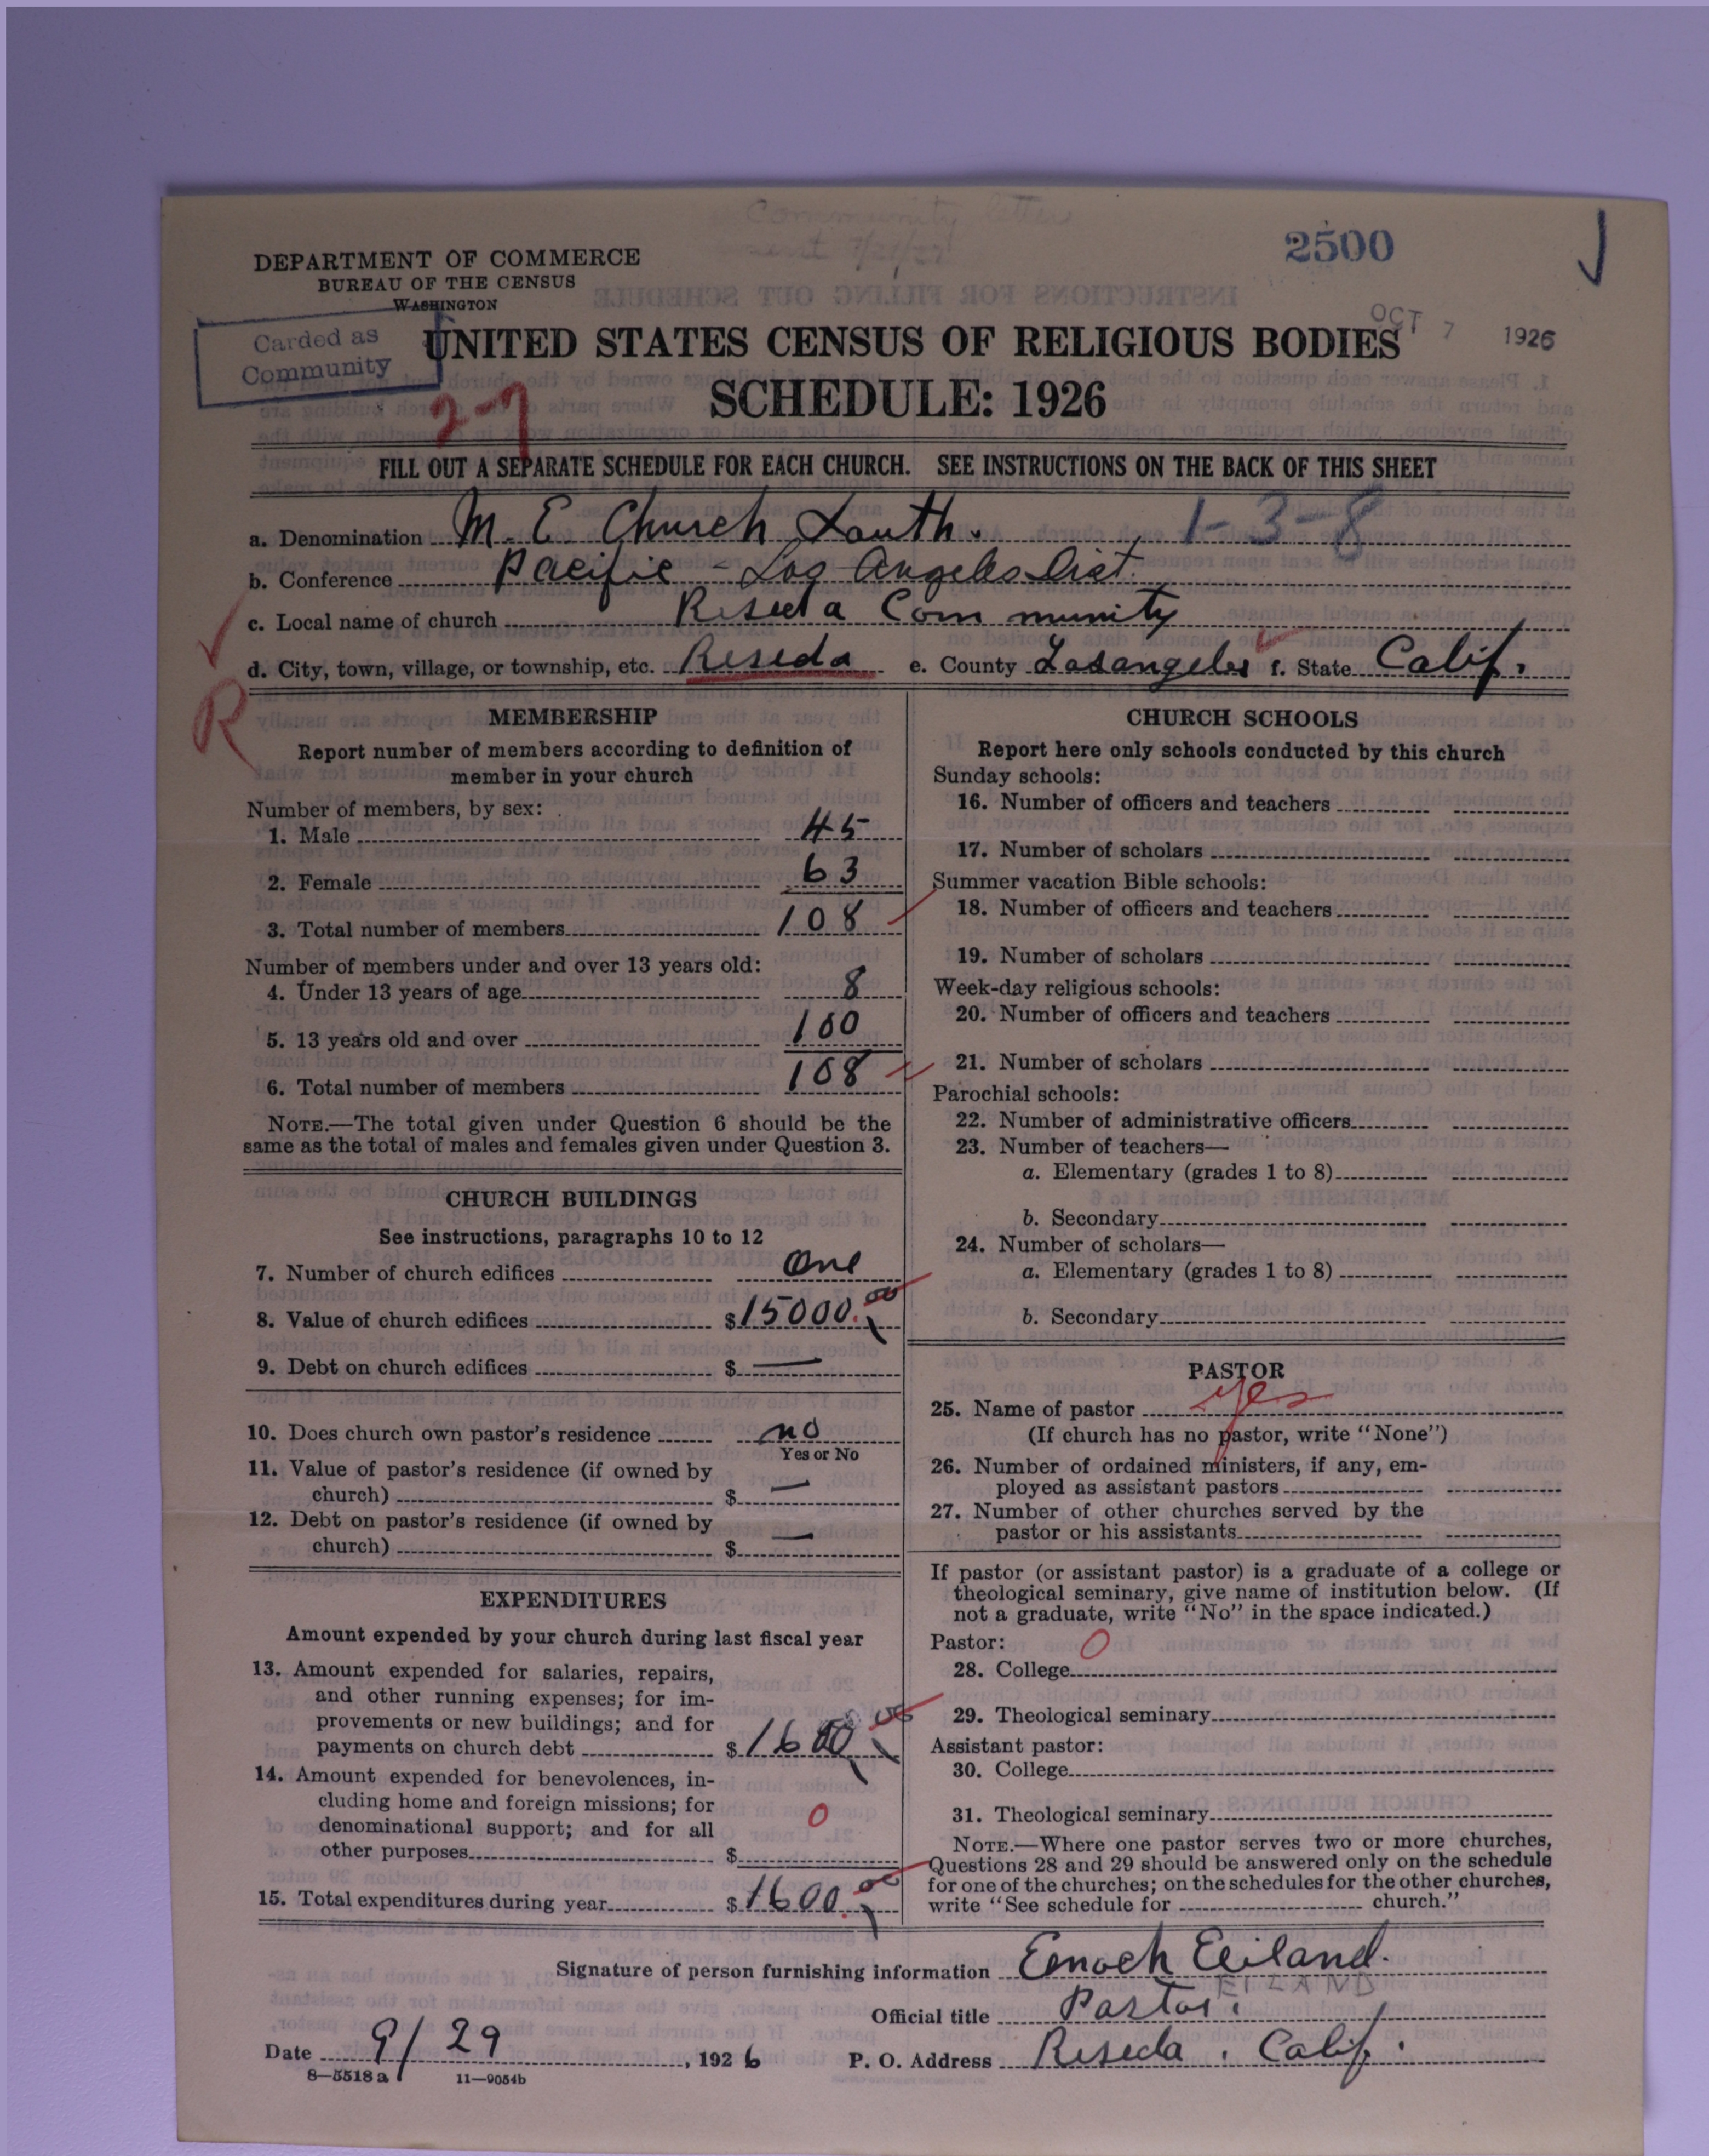 Community letter
sent
2500
DEPARTMENT OF COMMERCE
BUREAU OF THE CENSUS
WASHINGTON
OCT 7 1926
Carded as
Community
UNITED STATES CENSUS OF RELIGIOUS BODIES
SCHEDULE: 1926
2-7
FILL OUT A SEPARATE SCHEDULE FOR EACH CHURCH. SEE INSTRUCTIONS ON THE BACK OF THIS SHEET
a. Denomination M. E. Church South. 1-3-8
b. Conference Pacific - Los Angeles Dist.
c. Local name of church Reseda Community
d. City, town, village, or township, etc. Reseda e. County Los angeles f. State Calif.
R
MEMBERSHIP
Report number of members according to definition of
member in your church
Number of members, by sex:
1. Male 45
2. Female 63
3. Total number of members 108
Number of members under and over 13 years old:
4. Under 13 years of age 8
5. 13 years old and over 100
6. Total number of members 108
NOTE.—The total given under Question 6 should be the
same as the total of males and females given under Question 3.
CHURCH BUILDINGS
See instructions, paragraphs 10 to 12
7. Number of church edifices One
8. Value of church edifices $15000.00
9. Debt on church edifices $ —
10. Does church own pastor's residence no
Yes or No
11. Value of pastor's residence (if owned by
church) $ —
12. Debt on pastor's residence (if owned by
church) $ —
EXPENDITURES
Amount expended by your church during last fiscal year
13. Amount expended for salaries, repairs,
and other running expenses; for im-
provements or new buildings; and for
payments on church debt $1600.00
14. Amount expended for benevolences, in-
cluding home and foreign missions; for
denominational support; and for all
other purposes $ 0
15. Total expenditures during year $1600.00
CHURCH SCHOOLS
Report here only schools conducted by this church
Sunday schools:
16. Number of officers and teachers
17. Number of scholars
Summer vacation Bible schools:
18. Number of officers and teachers
19. Number of scholars
Week-day religious schools:
20. Number of officers and teachers
21. Number of scholars
Parochial schools:
22. Number of administrative officers
23. Number of teachers—
a. Elementary (grades 1 to 8)
b. Secondary
24. Number of scholars—
a. Elementary (grades 1 to 8)
b. Secondary
PASTOR
25. Name of pastor yes
(If church has no pastor, write "None")
26. Number of ordained ministers, if any, em-
ployed as assistant pastors
27. Number of other churches served by the
pastor or his assistants
If pastor (or assistant pastor) is a graduate of a college or
theological seminary, give name of institution below. (If
not a graduate, write "No" in the space indicated.)
Pastor: 0
28. College
29. Theological seminary
Assistant pastor:
30. College
31. Theological seminary
NOTE.—Where one pastor serves two or more churches,
Questions 28 and 29 should be answered only on the schedule
for one of the churches; on the schedules for the other churches,
write "See schedule for church."
Signature of person furnishing information Enoch Eiland.
EILAND
Official title Pastor.
Date 9/29, 1926 P. O. Address Reseda, Calif.
8—5518 a 11—9054b